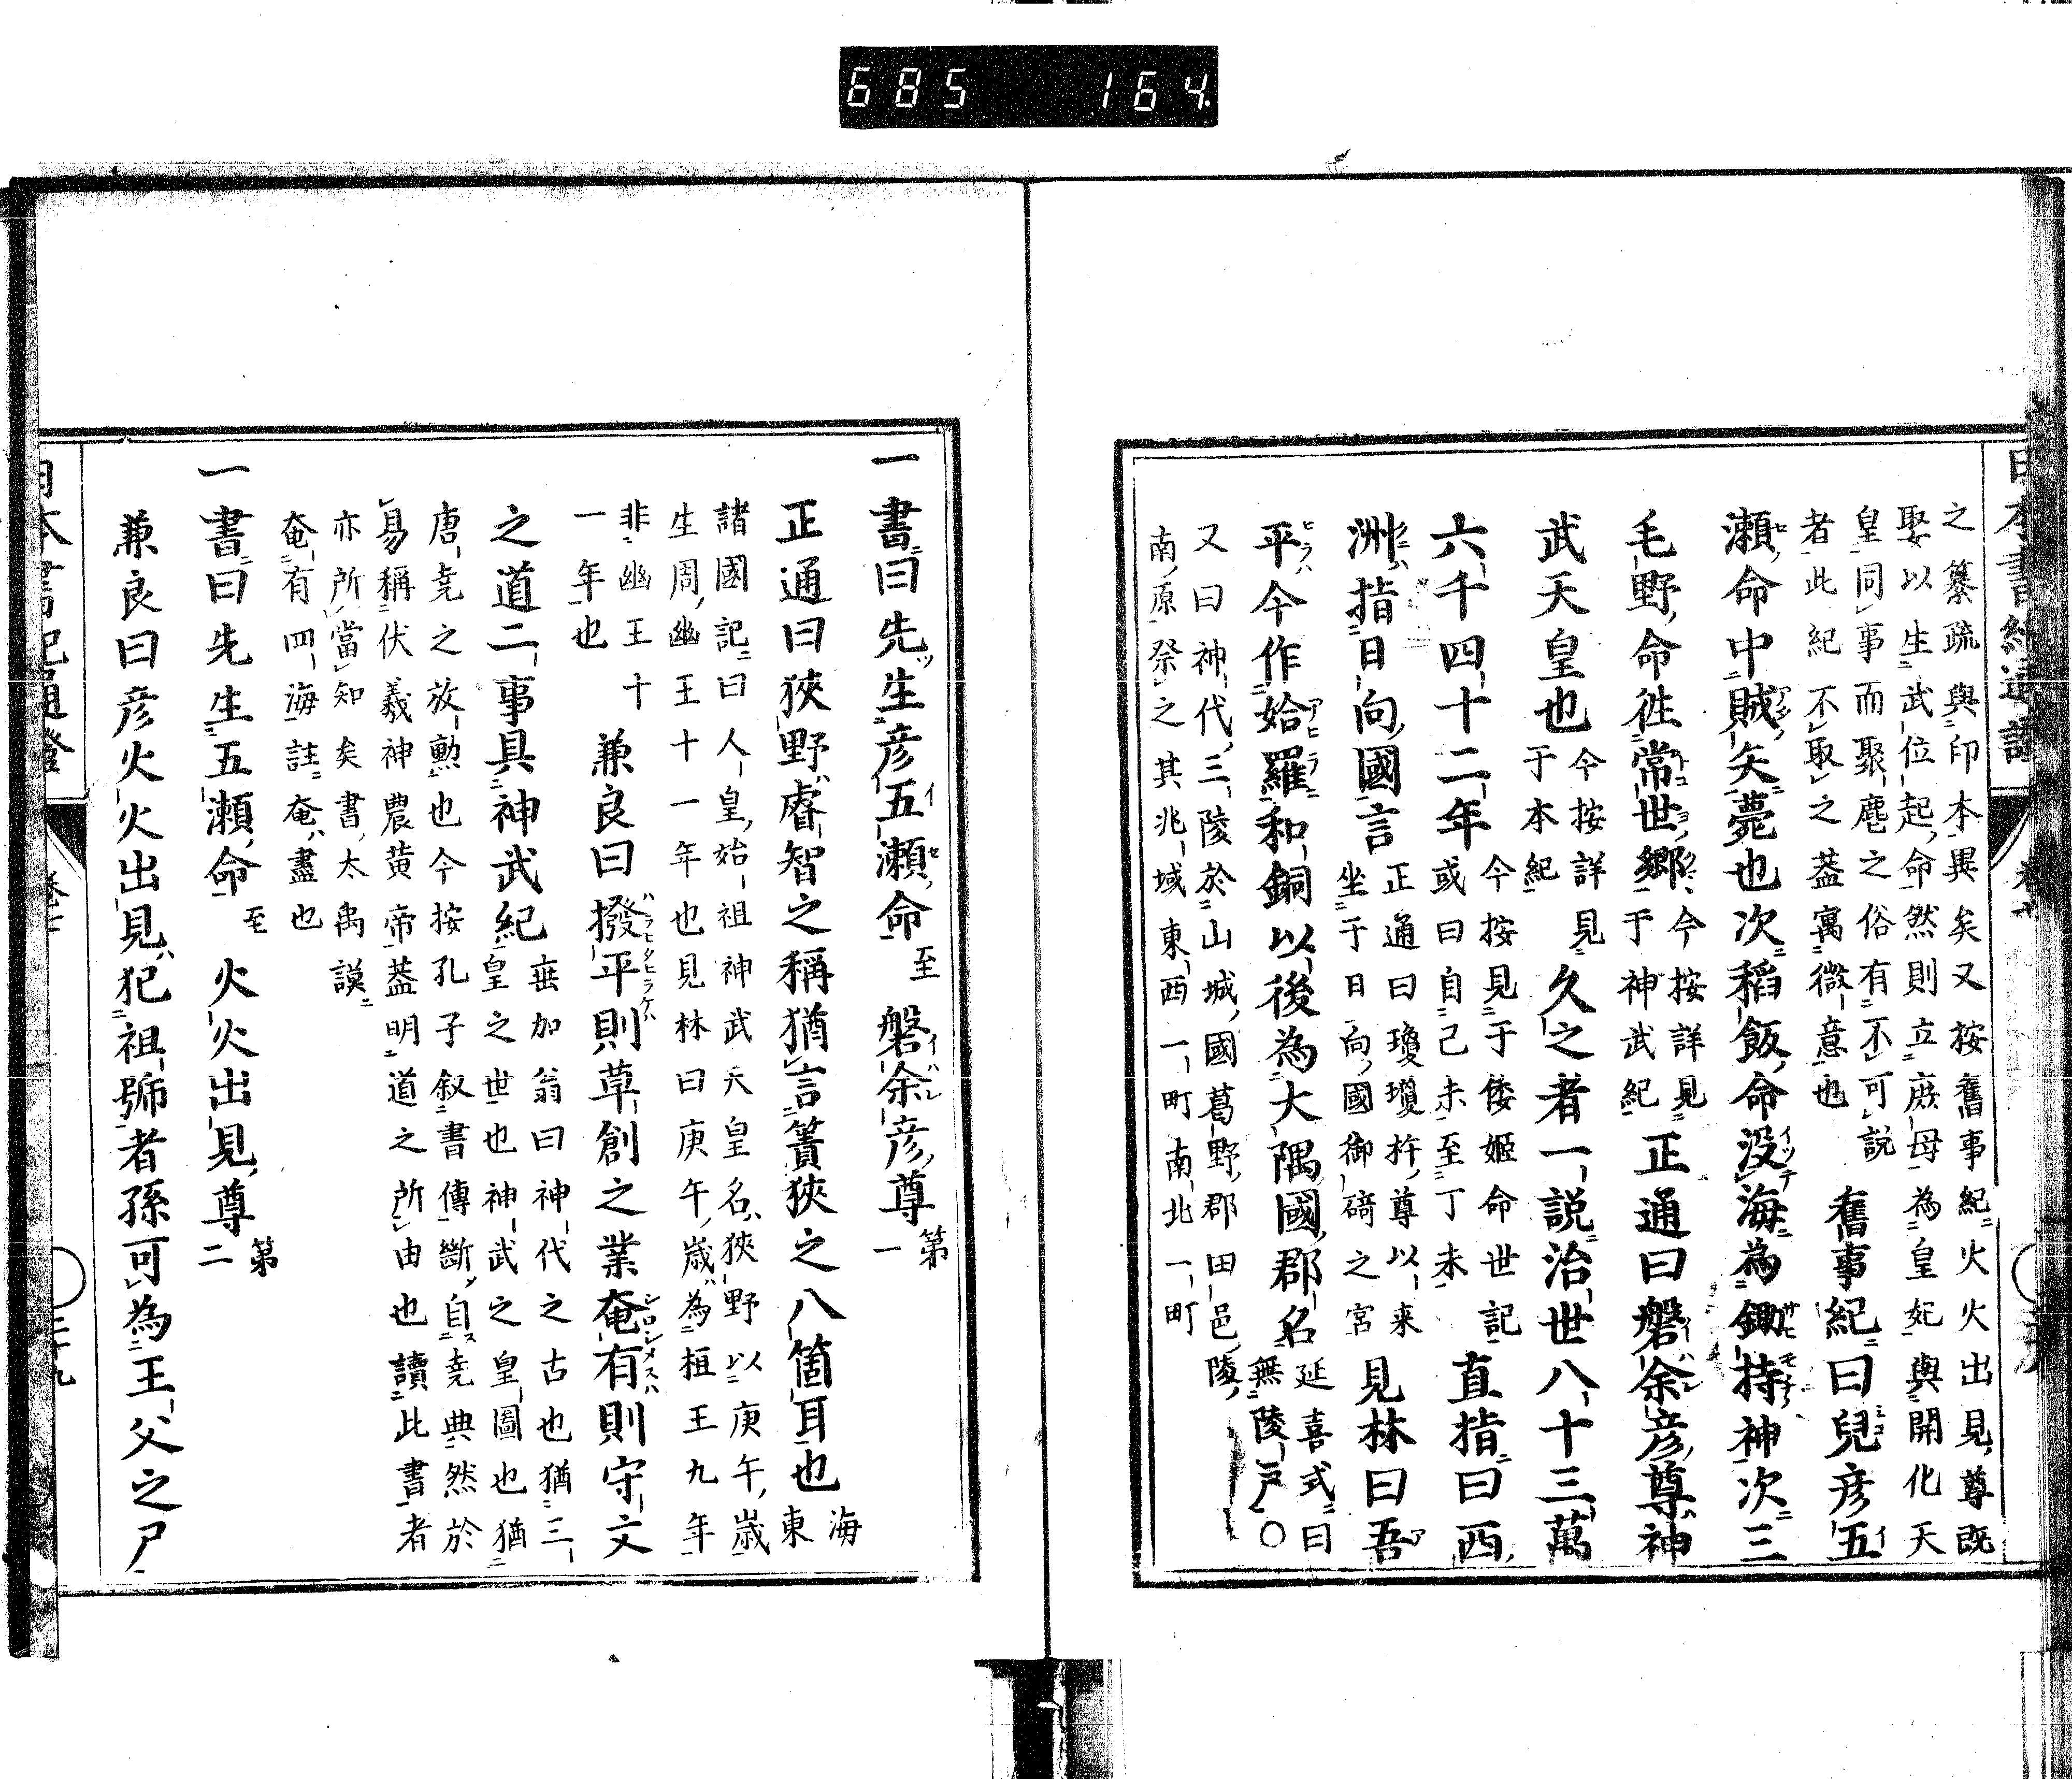 685 164
之纂疏與印本異矣又按舊事紀火火出見尊既
娶以生武位起命然則立庶母為皇妃與開化天
皇同事而聚麀之俗有不可説
者此紀不取之蓋寓微意也
舊事紀曰兒彦五
瀬命中賊矢薨也次稻飯命没海為鋤持神次三
毛野命徃常世郷
今按詳見
于神武紀
正通曰磐余彦尊神
武天皇也
今按詳見
于本紀
久之者一説治世八十三萬
六千四十二年
今按見于倭姫命世記
或曰自己未至丁未
直指曰西
洲指日向國言
正通曰瓊瓊杵尊以来
坐于日向國御碕之宮
見林曰吾
平今作姶羅和銅以後為大隅國郡名
延喜式曰
無陵戸○
又曰神代三陵於山城國葛野郡田邑陵
南原祭之其兆域東西一町南北一町
一書曰先生彦五瀬命至磐余彦尊第一
正通曰狹野睿智之稱猶言簀狹之八箇耳也
海東
諸國記曰人皇始祖神武天皇名狹野以庚午歳
生周幽王十一年也見林曰庚午歳為桓王九年
非幽王十
一年也
兼良曰撥平則草創之業奄有則守文
之道二事具神武紀
垂加翁曰神代之古也猶三
皇之世也神武之皇圖也猶
唐堯之放勲也今按孔子叙書傳斷自堯典然於
易稱伏羲神農黄帝蓋明道之所由也讀此書者
亦所當知矣書太禹謨
奄有四海註奄盡也
一書曰先生五瀬命至火火出見尊第二
兼良曰彦火火出見犯祖號者孫可為王父之尸
日本書紀通證